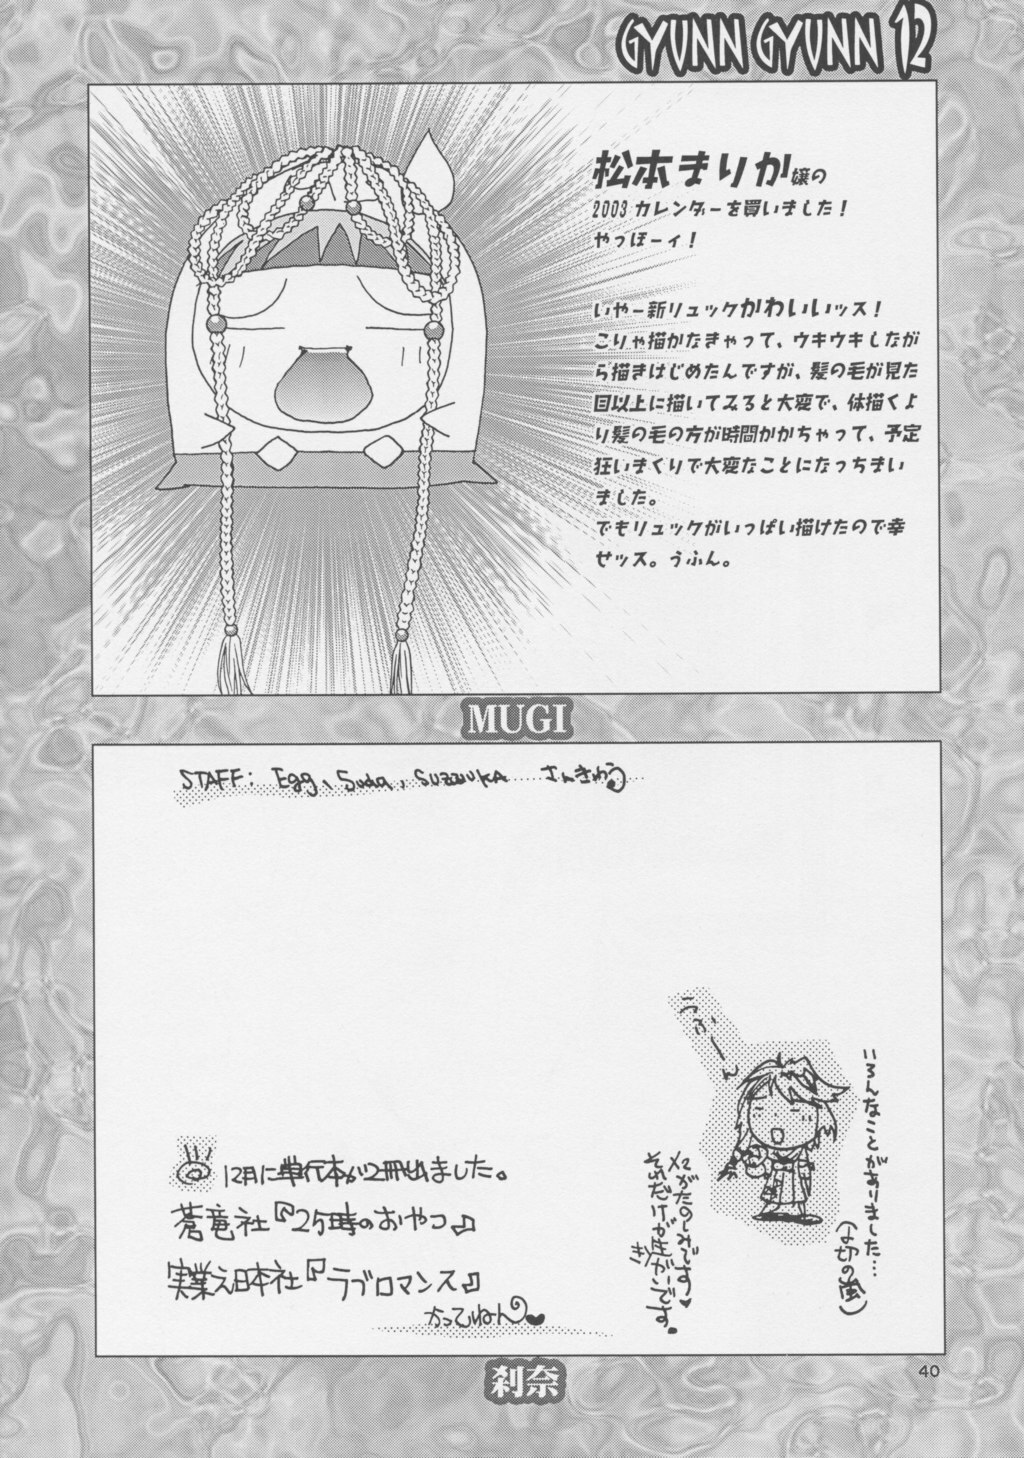 GYUNN GYUNN 12
松本まりか嬢の
2003カレンダーを買いました！
やっほーィ！
いやー新リュックかわいいッス！
こりゃ描かなきゃって、ウキウキしなが
ら描きはじめたんですが、髪の毛が見た
目以上に描いてみると大変で、体描くよ
り髪の毛の方が時間かかちゃって、予定
狂いまくりで大変なことになっちまい
ました。
でもリュックがいっぱい描けたので幸
せッス。うふん。
MUGI
STAFF: Egg、Suda,
さんきゅう
うふーん
いろんなことがありました…
(〆切の嵐)
××がたのしみです♥
それだけが生きがいです。
12月に単行本が2冊出ました。
蒼竜社『25時のおやつ』
実業之日本社『ラブロマンス』
かってねん♥
刹奈
40